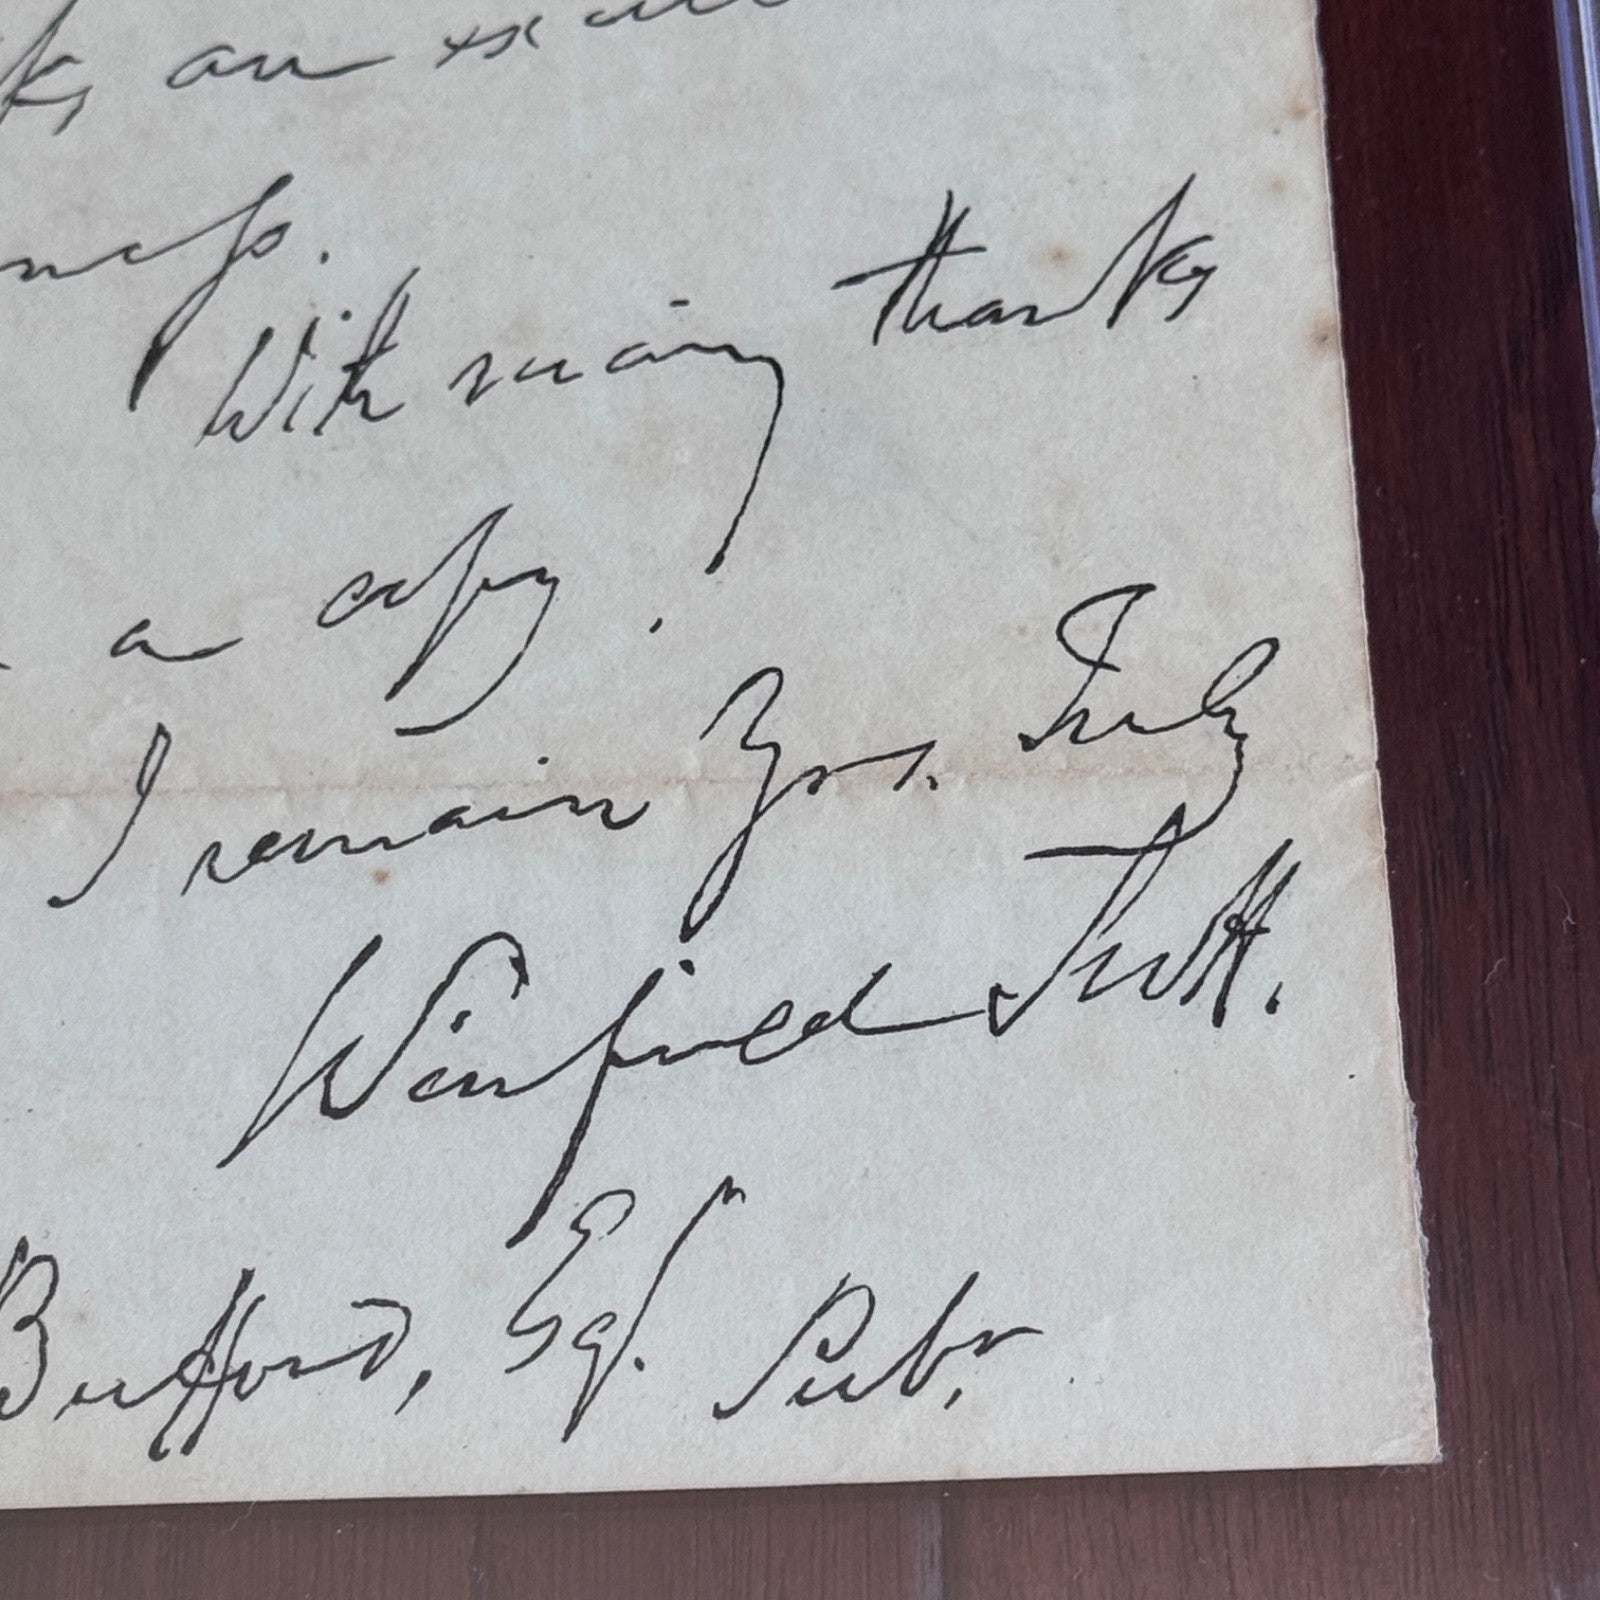 an
With many thanks
a copy.
I remain Yrs. Truly
Winfield Scott.
Bufford, Esq. Pubr.